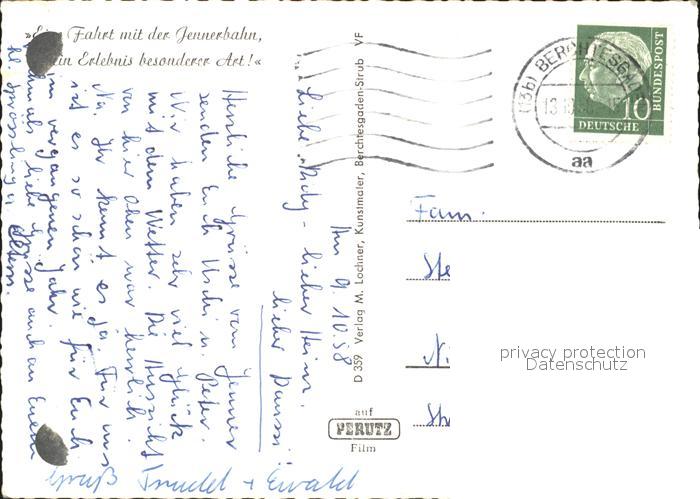 »Eine Fahrt mit der Jennerbahn,
ein Erlebnis besonderer Art!«
Am 9.10.58
Liebe - lieber Heinz,
lieber
Herzliche Grüsse vom Jenner
senden Euch Uschi u. Peter.
Wir haben sehr viel Glück
mit dem Wetter. Die Aussicht
von hier oben war herrlich.
Na, Ihr kennt es ja. Für uns
ist es so schön wie für Euch
im vergangenen Jahr.
Nochmals liebe Grüsse auch an Euren
kl.
Gruß Trudel + Ewald
D 359 Verlag M. Lochner, Kunstmaler, Berchtesgaden-Strub VF
auf
PERUTZ
Film
(13b) BERCHTESGADEN
13.10.
aa
10
DEUTSCHE
BUNDESPOST
Fam.
Ste
Ni
privacy protection
Datenschutz